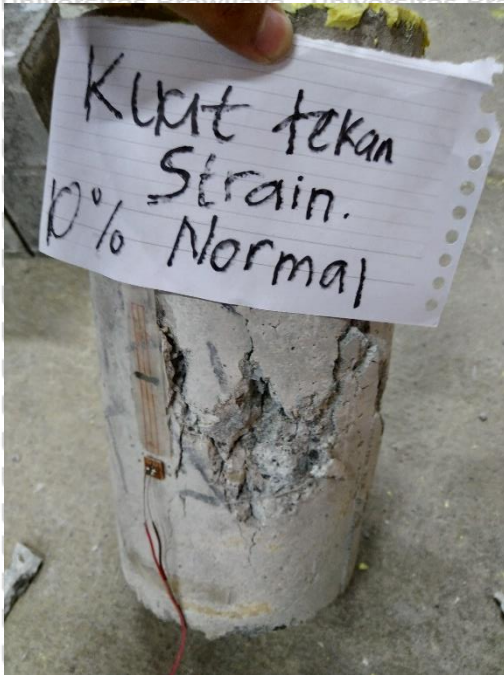 Kuat tekan
Strain.
0% Normal